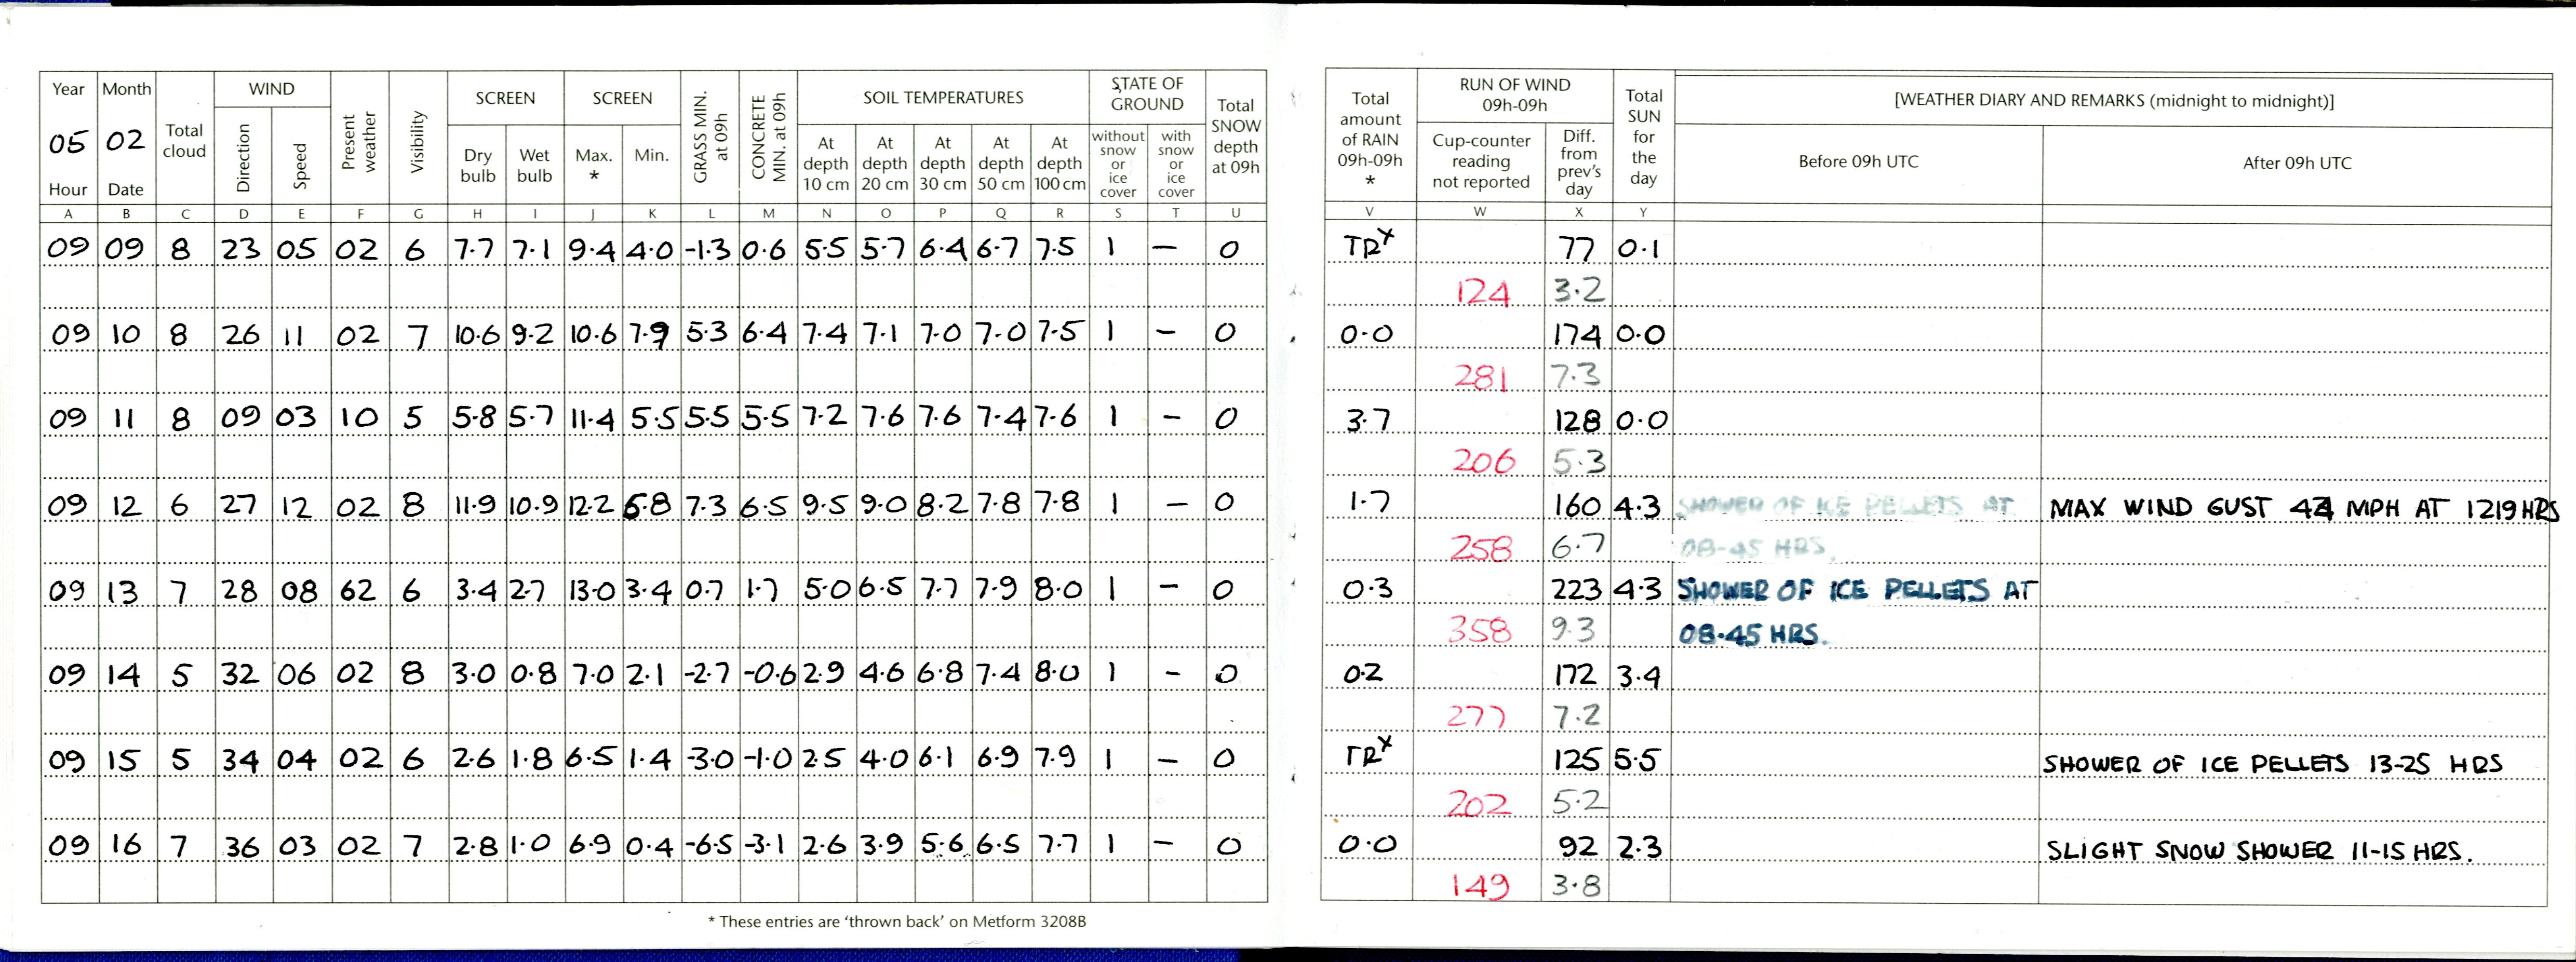 Year Month Total cloud WIND Present weather Visibility SCREEN SCREEN GRASS MIN. at 09h CONCRETE MIN. at 09h SOIL TEMPERATURES STATE OF GROUND Total SNOW depth at 09h Total amount of RAIN 09h-09h * RUN OF WIND 09h-09h Total SUN for the day [WEATHER DIARY AND REMARKS (midnight to midnight)]
05 02 Direction Speed Dry bulb Wet bulb Max. * Min. At depth 10 cm At depth 20 cm At depth 30 cm At depth 50 cm At depth 100 cm without snow or ice cover with snow or ice cover Cup-counter reading not reported Diff. from prev's day Before 09h UTC After 09h UTC
Hour Date
A B C D E F G H I J K L M N O P Q R S T U V W X Y
09 09 8 23 05 02 6 7.7 7.1 9.4 4.0 -1.3 0.6 5.5 5.7 6.4 6.7 7.5 1 — 0 TRx 77 0.1
124 3.2
09 10 8 26 11 02 7 10.6 9.2 10.6 7.9 5.3 6.4 7.4 7.1 7.0 7.0 7.5 1 — 0 0.0 174 0.0
281 7.3
09 11 8 09 03 10 5 5.8 5.7 11.4 5.5 5.5 5.5 7.2 7.6 7.6 7.4 7.6 1 — 0 3.7 128 0.0
206 5.3
09 12 6 27 12 02 8 11.9 10.9 12.2 7.3 6.5 9.5 9.0 8.2 7.8 7.8 1 — 0 1.7 160 4.3 SHOWER OF ICE PELLETS AT MAX WIND GUST MPH AT 1219 HRS
258 6.7 08-45 HRS.
09 13 7 28 08 62 6 3.4 2.7 13.0 3.4 0.7 1.7 5.0 6.5 7.7 7.9 8.0 1 — 0 0.3 223 4.3 SHOWER OF ICE PELLETS AT
358 9.3 08.45 HRS.
09 14 5 32 06 02 8 3.0 0.8 7.0 2.1 -2.7 -0.6 2.9 4.6 6.8 7.4 8.0 1 — 0 0.2 172 3.4
277 7.2
09 15 5 34 04 02 6 2.6 1.8 6.5 1.4 -3.0 -1.0 2.5 4.0 6.1 6.9 7.9 1 — 0 TRx 125 5.5 SHOWER OF ICE PELLETS 13-25 HRS
202 5.2
09 16 7 36 03 02 7 2.8 1.0 6.9 0.4 -6.5 -3.1 2.6 3.9 5.6 6.5 7.7 1 — 0 0.0 92 2.3 SLIGHT SNOW SHOWER 11-15 HRS.
149 3.8
* These entries are 'thrown back' on Metform 3208B